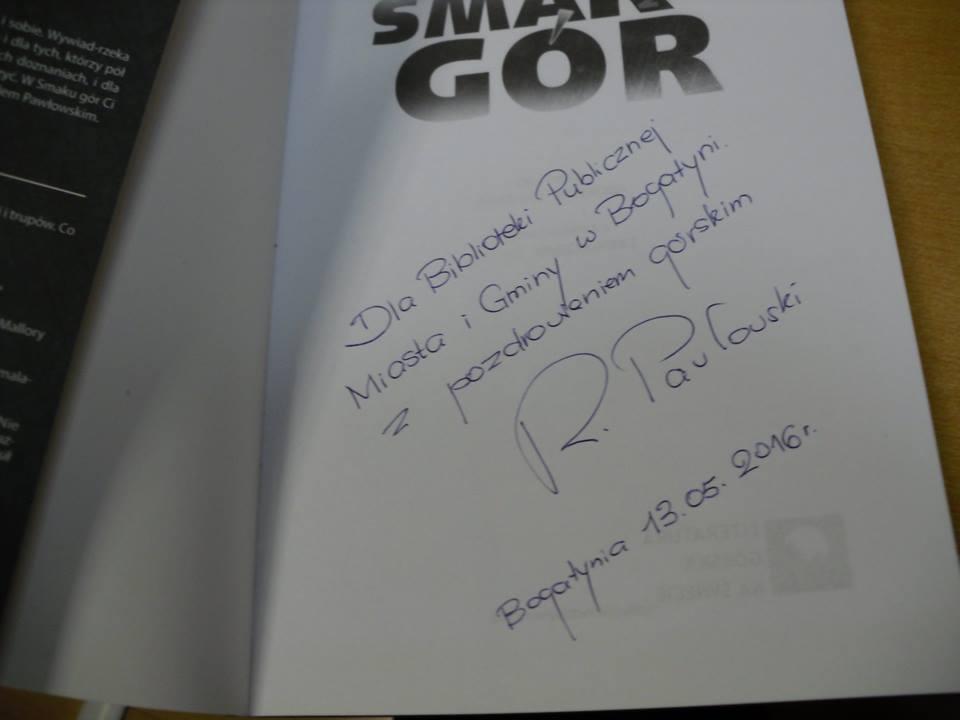 i sobie. Wywiad-rzeka
i dla tych, którzy pół
ch doznaniach, i dla
zyc. W Smaku gór Ci
iem Pawłowskim.
i trupów. Co
Mallory
mala-
Nie
SMAK
GÓR
Dla Biblioteki Publicznej
Miasta i Gminy w Bogatyni.
z pozdrowieniem górskim
R. Pawłowski
Bogatynia 13.05.2016r.
LITERATURA
GÓRSKA
NA ŚWIECIE